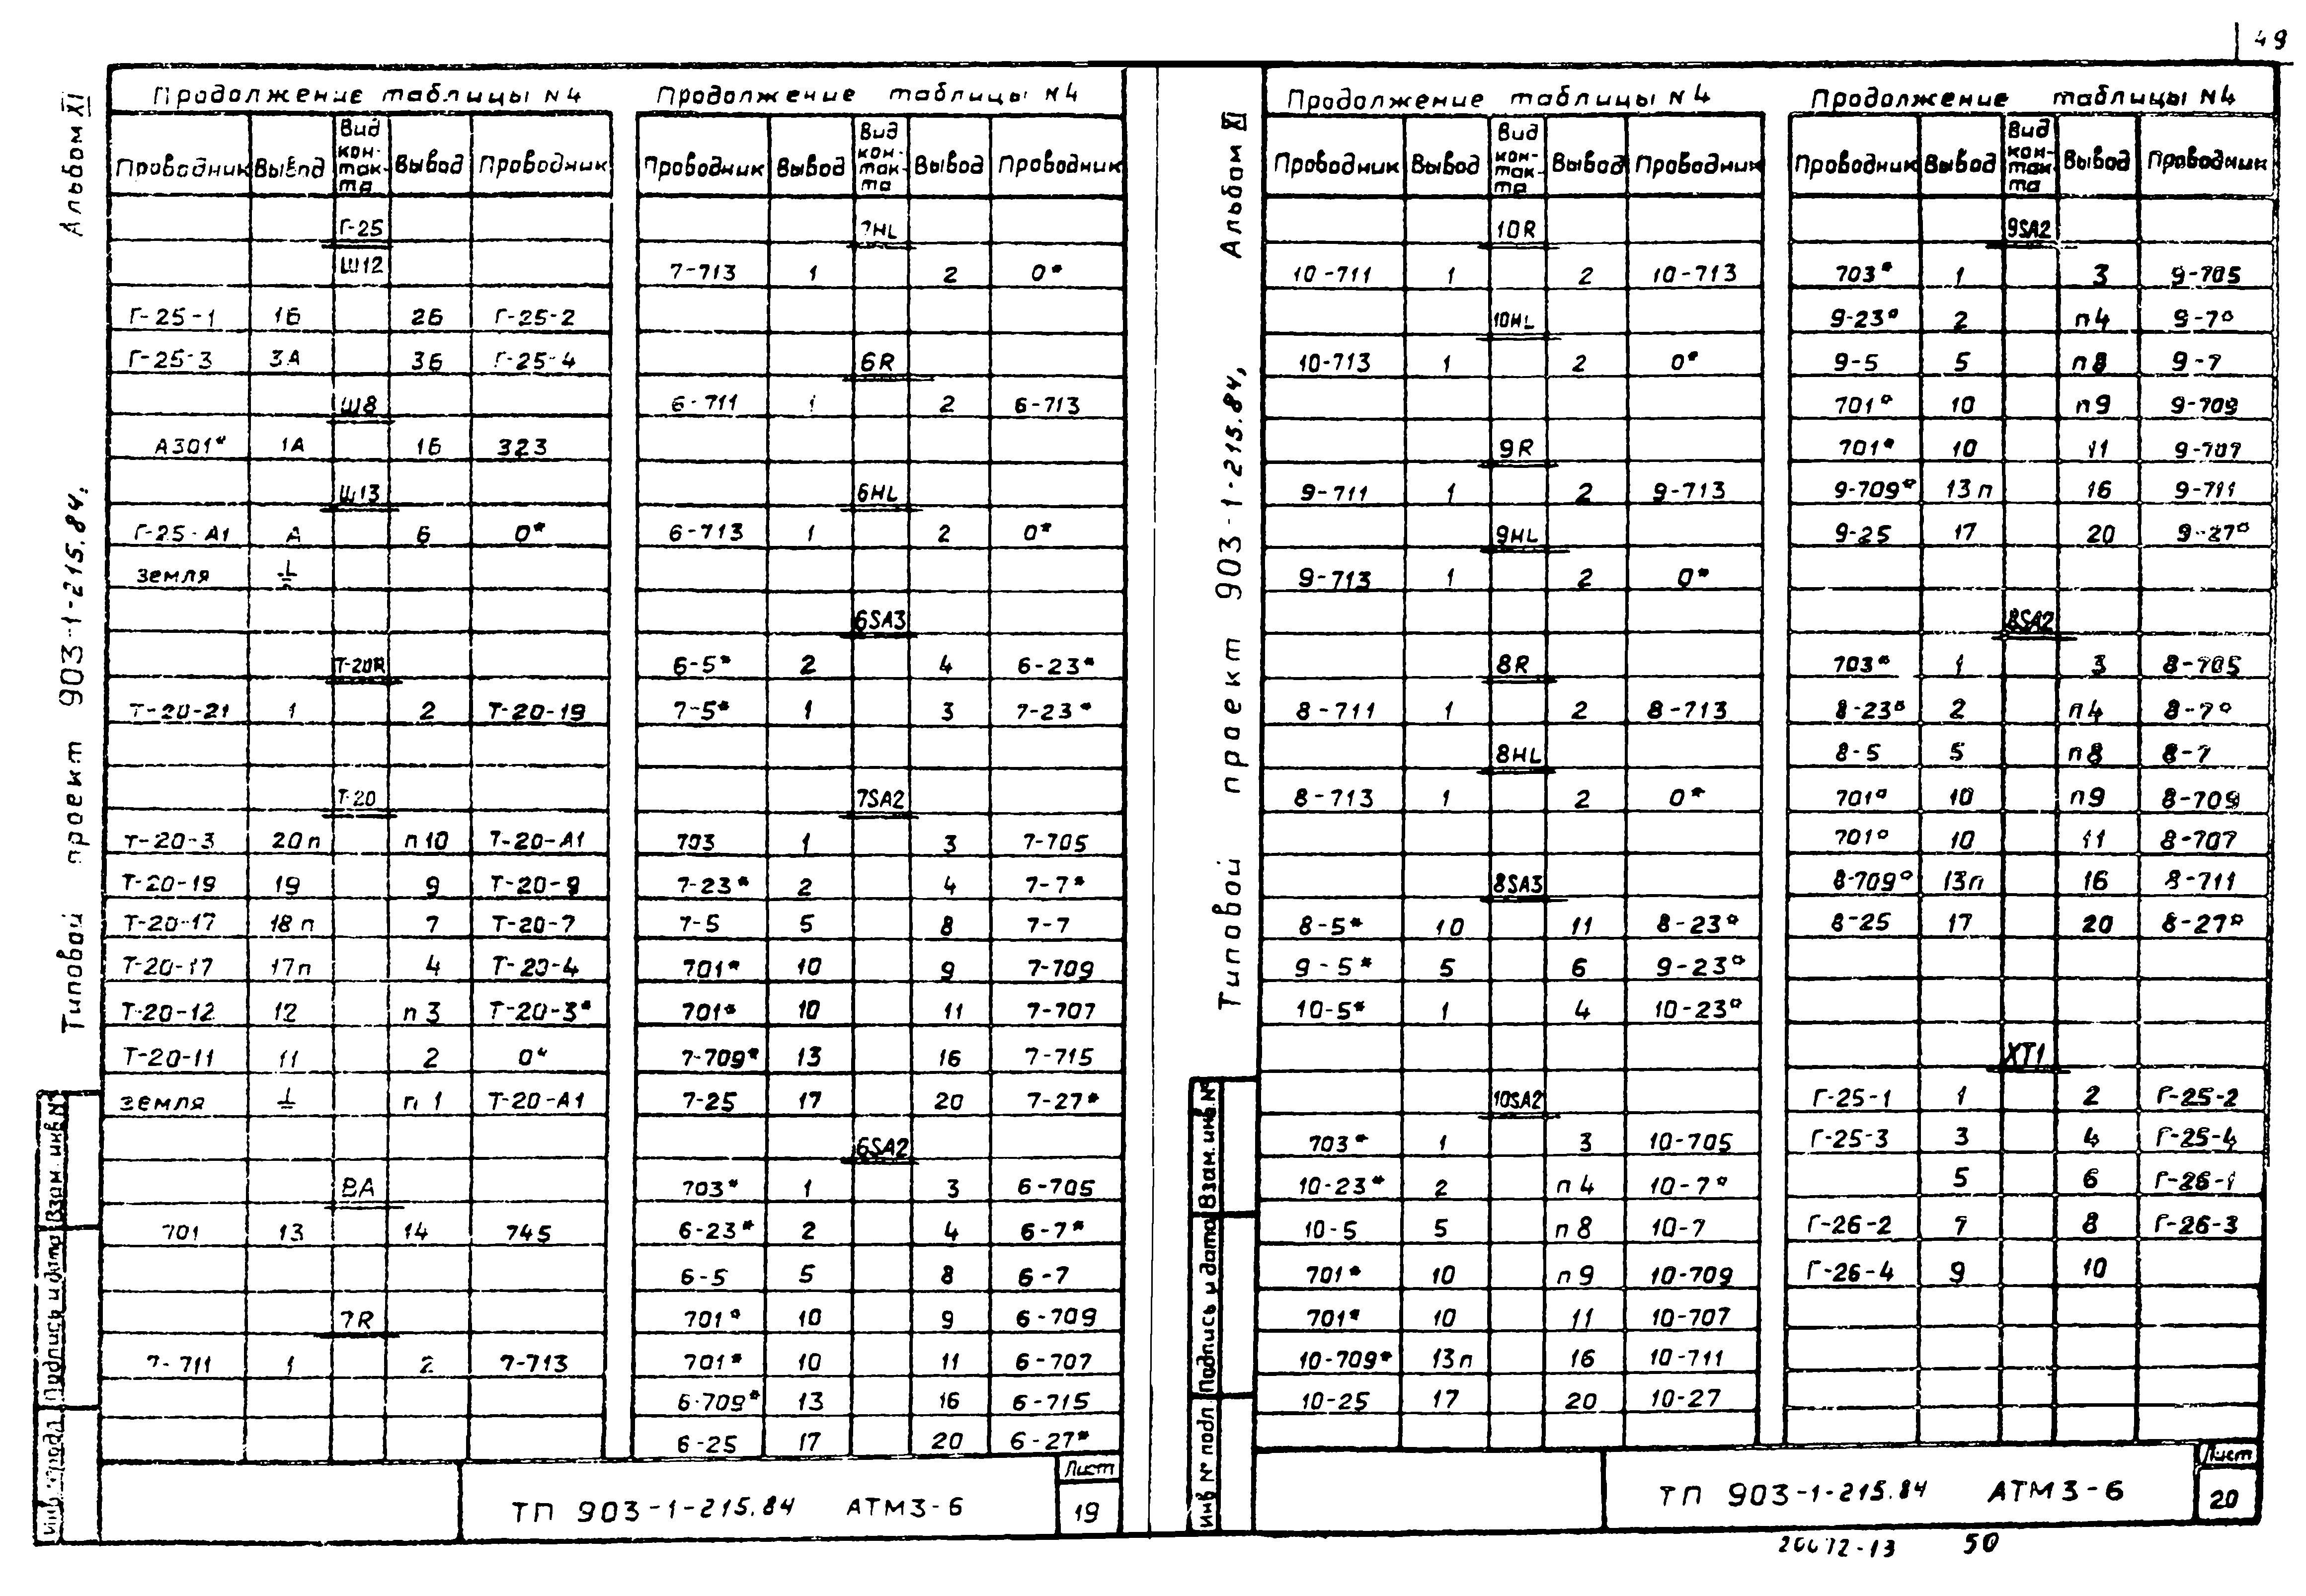 49
Альбом XI
Типовой проект 903-1-215.84,
Продолжение таблицы N4
Проводник Вывод Вид кон-так-та Вывод Проводник
Г-25
Ш12
Г-25-1 1Б 2Б Г-25-2
Г-25-3 3А 3Б Г-25-4
Ш8
А301* 1А 1Б 323
Ш13
Г-25-А1 А Б 0*
земля ⏚
Т-20R
Т-20-21 1 2 Т-20-19
Т-20
Т-20-3 20п п10 Т-20-А1
Т-20-19 19 9 Т-20-9
Т-20-17 18п 7 Т-20-7
Т-20-17 17п 4 Т-20-4
Т-20-12 12 п3 Т-20-3*
Т-20-11 11 2 0*
земля ⏚ п1 Т-20-А1
ВА
701 13 14 745
7R
7-711 1 2 7-713
Продолжение таблицы N4
Проводник Вывод Вид кон-так-та Вывод Проводник
7HL
7-713 1 2 0*
6R
6-711 1 2 6-713
6HL
6-713 1 2 0*
6SA3
6-5* 2 4 6-23*
7-5* 1 3 7-23*
7SA2
703 1 3 7-705
7-23* 2 4 7-7*
7-5 5 8 7-7
701* 10 9 7-709
701* 10 11 7-707
7-709* 13 16 7-715
7-25 17 20 7-27*
6SA2
703* 1 3 6-705
6-23* 2 4 6-7*
6-5 5 8 6-7
701* 10 9 6-709
701* 10 11 6-707
6-709* 13 16 6-715
6-25 17 20 6-27*
Взам. инв №
Подпись и дата
ТП 903-1-215.84 АТМ3-6
Лист
19
Альбом XI
Типовой проект 903-1-215.84,
Продолжение таблицы N4
Проводник Вывод Вид кон-так-та Вывод Проводник
10R
10-711 1 2 10-713
10HL
10-713 1 2 0*
9R
9-711 1 2 9-713
9HL
9-713 1 2 0*
8R
8-711 1 2 8-713
8HL
8-713 1 2 0*
8SA3
8-5* 10 11 8-23*
9-5* 5 6 9-23*
10-5* 1 4 10-23*
10SA2
703* 1 3 10-705
10-23* 2 п4 10-7*
10-5 5 п8 10-7
701* 10 п9 10-709
701* 10 11 10-707
10-709* 13п 16 10-711
10-25 17 20 10-27
Продолжение таблицы N4
Проводник Вывод Вид кон-так-та Вывод Проводник
9SA2
703* 1 3 9-705
9-23* 2 п4 9-7*
9-5 5 п8 9-7
701* 10 п9 9-709
701* 10 11 9-707
9-709* 13п 16 9-711
9-25 17 20 9-27*
8SA2
703* 1 3 8-705
8-23* 2 п4 8-7*
8-5 5 п8 8-7
701* 10 п9 8-709
701* 10 11 8-707
8-709* 13п 16 8-711
8-25 17 20 8-27*
XT1
Г-25-1 1 2 Г-25-2
Г-25-3 3 4 Г-25-4
5 6 Г-26-1
Г-26-2 7 8 Г-26-3
Г-26-4 9 10
Взам. инв. №
Подпись и дата
Инв № подл.
ТП 903-1-215.84 АТМ3-6
Лист
20
50